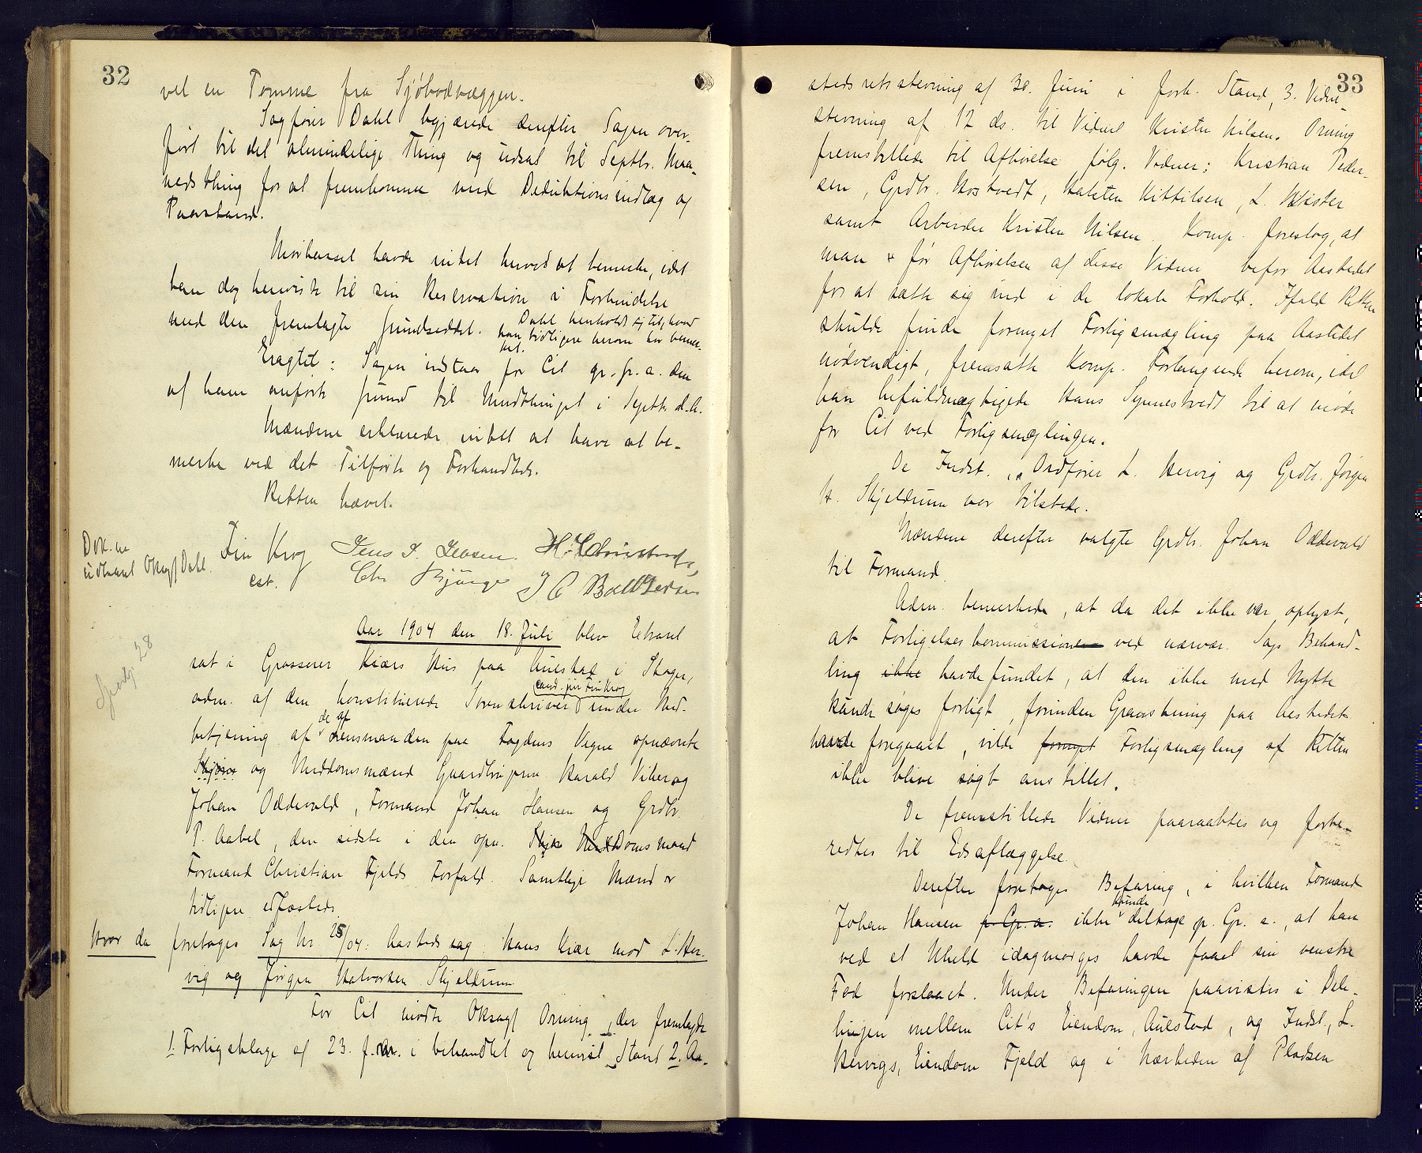 32
vel en Tomme fra Sjøbodvæggen.
Sagfører Dahl begjærede derefter Sagen over-
ført til det almindelige Thing og udsat til Septbr. Maa-
nedsthing for at fremkomme med Deduktionsindlæg og
Paastand.
Morhensel havde intet herved at bemerke, idet
han dog henviste til sin Reservation i Forbindelse
med den fremlagte Grundseddel. Dahl henholdt sig til, hvad
han tidligere herom har bemer-
ket.
Eragtet: Sagen udstaar for Cit. gr. fr. a. den
af ham anførte Grund til Mndthinget i Septbr. d. A.
Mændene erklærede intet at have at be-
merke ved det Tilførte og Forhandlede.
Retten hævet.
Dok.ne
udlaant Oksagf Dahl.
Fin Krog
cst.
Jens J. Jensen.
H. Christensen,
Chr Bjünge
J C Boll Pedersen
Aar 1904 den 18. Juli blev Extraret
sat i Grosserer Kiærs Hus paa Aulestad i Skager,
adm. af den konstituerede Sorenskriver cand. jur. Fin Krog under Med-
betjening af de af Lensmanden paa Fogdens Vegne opnævnte
Skjøns og Meddomsmænd Gaardbrugerne Harald Vike og
Johan Oddevald, Formand Johan Hansen og Grdbr.
P. Aabel, den sidste i den opn. Skjøns Meddomsmand
Formand Christian Fjelds Forfald. Samtlige Mænd er
tidligere edfæstede.
Spadg. 28
Hvor da foretoges Sag Nr. 28/04: Aastedssag: Hans Kiær mod L. Her-
vig og Jørgen Halvorsen Skjeldrum.
For Cit. mødte Oksagf Orning, der fremlagde
1 Forligsklage af 23. f. m. i behandlet og henvist Stand 2. Aa-
33
stedsretsstevning af 30. Juni i fork. Stand, 3. Vidne-
stevning af 12 ds. til Vidnet Kristen Nilsen. Orning
fremstillede til Afhørelse følg. Vidner: Kristian Peder-
sen, Grdbr. Rostvedt, Halsten Kittilsen, L. Wister
samt Arbeider Kristen Nilsen. Komp. foreslog, at
man før Afhørelsen af disse Vidner befor Aastedet
for at sætte sig ind i de lokale Forhold. Ifald Retten
skulde finde fornyet Forligsmægling paa Aastedet
nødvendigt, fremsatte Komp. Forlangende herom, idet
han befuldmægtigede Hans Synnestvedt til at møde
for Cit. ved Forligsmæglingen.
De Indst., Ordfører L. Hervig og Grdbr. Jørgen
H. Skjeldrum var tilstede.
Mændene derefter valgte Grdbr. Johan Oddevald
til Formand.
Adm. bemerkede, at da det ikke var oplyst,
at Forligelseskommissionen ved nærvær. Sags Behand-
ling ikke havde fundet, at den ikke med Nytte
kunde søges forligt, forinden Granskning paa Aastedet
havde foregaaet, vilde fornyet Forligsmægling af Retten
ikke blive søgt anstillet.
De fremstillede Vidner paaraabtes og forbe-
redtes til Edsaflæggelse.
Derefter foretoges Befaring, i hvilken Formand
Johan Hansen p. Gr. a. ikke kunde deltage p. Gr. a., at han
ved et Uheld idagmorges havde faaet sin venstre
Fod forslaaet. Under Befaringen paavistes i Dele-
linjen mellem Cit's Eiendom, Aulestad, og Indst., L.
Hervigs, Eiendom Fjeld og i Nærheden af Pladsen